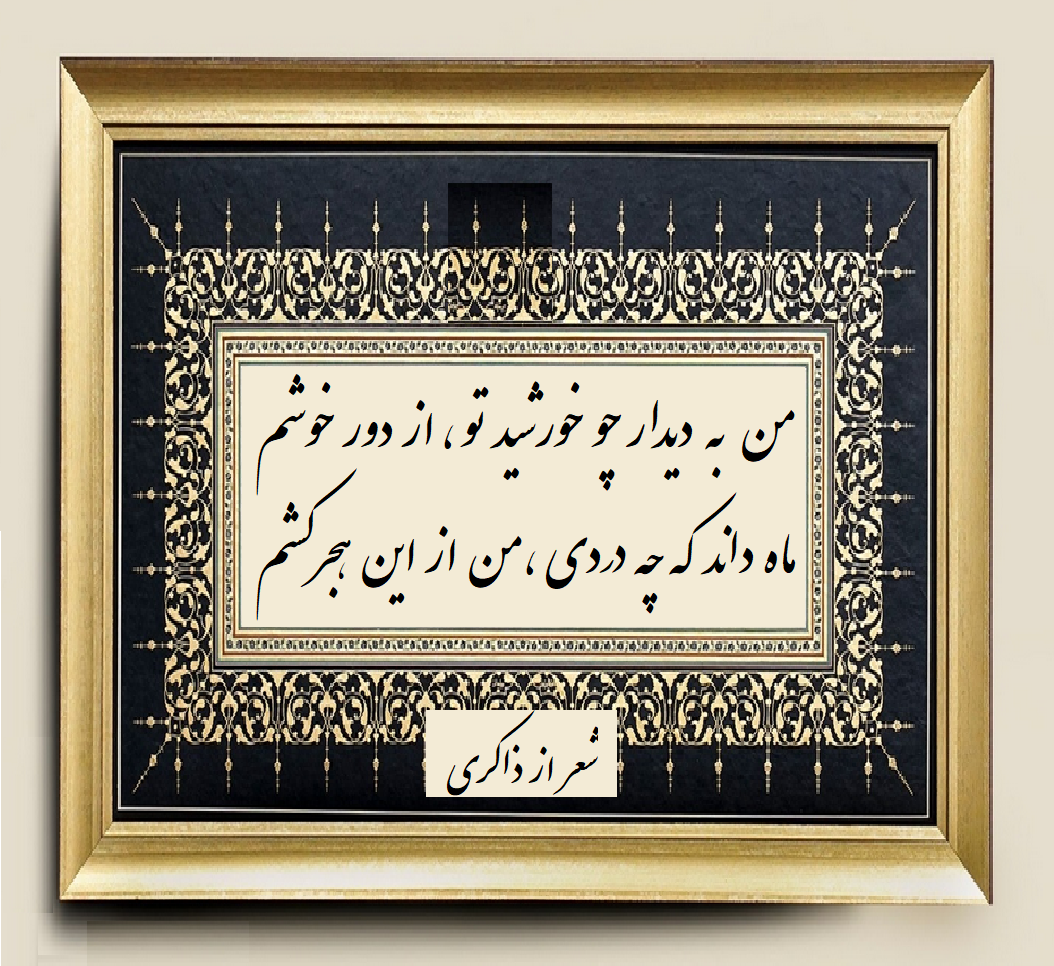 من به دیدار چو خورشید تو، از دور خوشم
ماه داند که چه دردی ،من از این هجر کشم
شعر از ذاکری